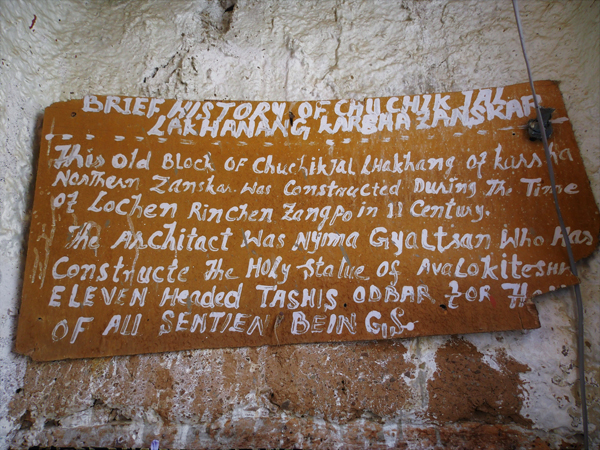 BRIEF HISTORY OF CHUCHIKJAL
LAKHANANG KARSHA ZANSKAR
This old BLOCK OF ChuchikJal LHakhang of Karsha
Northern Zanskar. Was Constructed During The Time
of Lochen Rinchen Zangpo in 11 Century.
The Architact Was Nyima Gyaltsan Who Has
Constructe The Holy Statue of Avalokitesha
ELEVEN Headed TASHIS ODBAR For
OF All SENTIEN BEINGS.